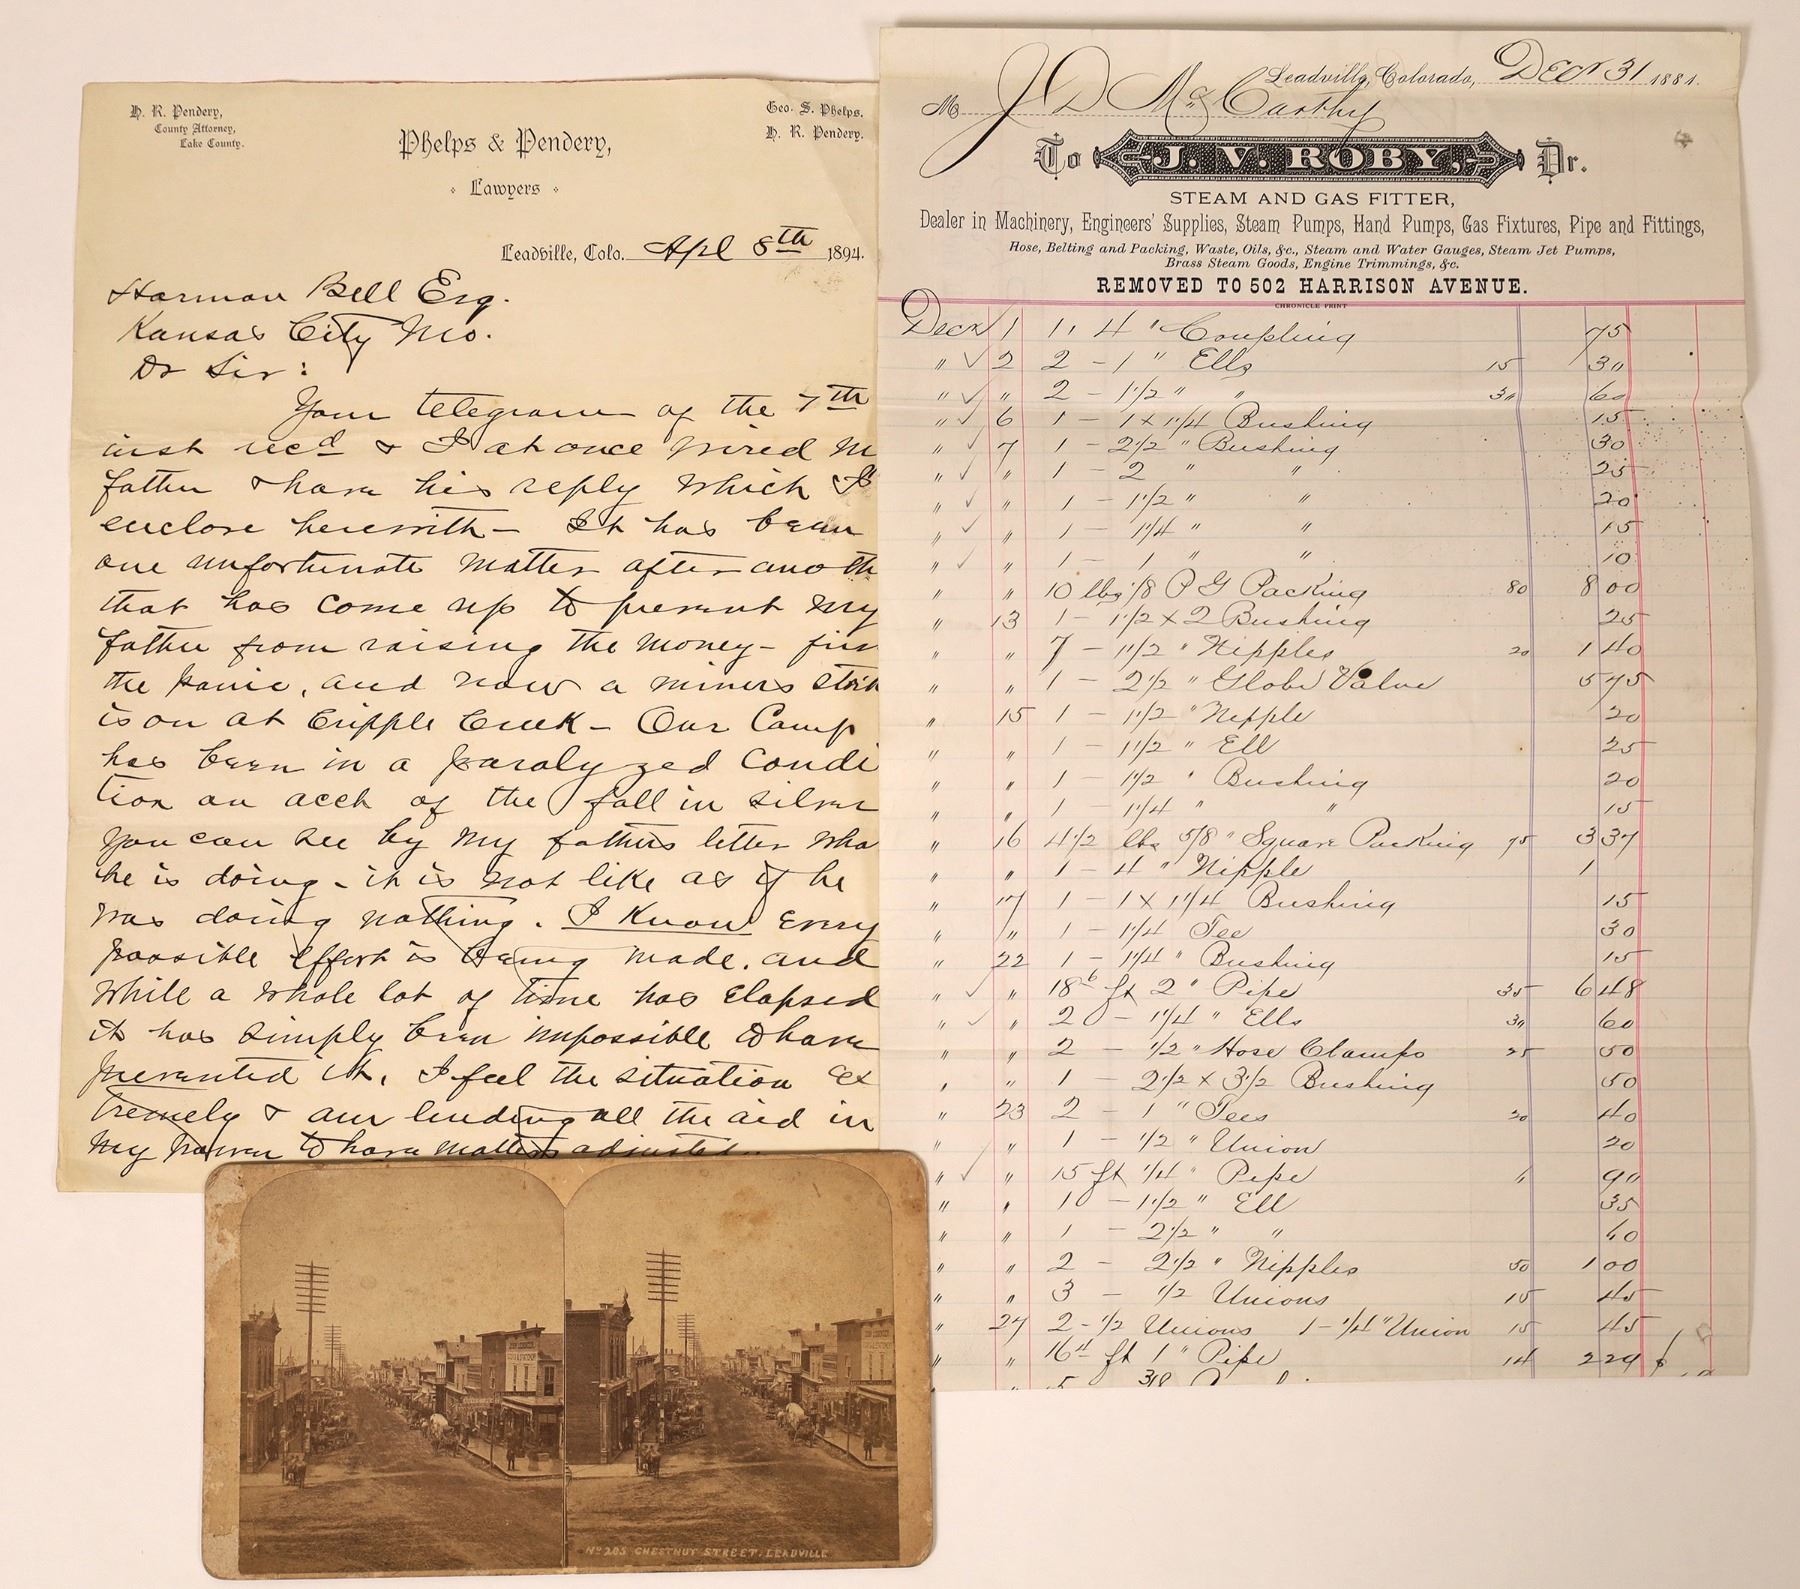 H. R. Pendery,
County Attorney,
Lake County.
Geo. S. Phelps.
H. R. Pendery.
Phelps & Pendery,
Lawyers
Leadville, Colo. Apl 8th 1894.
Harman Bell Esq.
Kansas City Mo.
Dr Sir:
Your telegram of the 7th
inst recd & I at once wired my
father & have his reply which I
enclose herewith - It has been
one unfortunate matter after anoth
that has come up to prevent my
father from raising the money - firs
the panic, and now a miners strik
is on at Cripple Creek - Our Camp
has been in a paralyzed condi
tion on acct of the fall in silver
you can see by my fathers letter wha
he is doing - it is not like as if he
was doing nothing. I Know every
possible effort is being made. and
while a whole lot of time has elapsed
it has simply been impossible to have
prevented it. I feel the situation ex
tremely & am lending all the aid in
my power to have matters adjusted.
Leadville, Colorado, Decr 31 1881.
M J D McCarthy
To J. V. ROBY, Dr.
STEAM AND GAS FITTER,
Dealer in Machinery, Engineers' Supplies, Steam Pumps, Hand Pumps, Gas Fixtures, Pipe and Fittings,
Hose, Belting and Packing, Waste, Oils, &c., Steam and Water Gauges, Steam Jet Pumps,
Brass Steam Goods, Engine Trimmings, &c.
REMOVED TO 502 HARRISON AVENUE.
CHRONICLE PRINT
Decr 1 1, 4 " Coupling 75
" ✓ 2 2 - 1 " Ells 15 30
" ✓ " 2 - 1 1/2 " " 30 60
" ✓ 6 1 - 1 x 1 1/4 Bushing 15
" ✓ 7 1 - 2 1/2 " Bushing 30
" ✓ " 1 - 2 " " 25
" ✓ " 1 - 1 1/2 " " 20
" ✓ " 1 - 1 1/4 " " 15
" ✓ " 1 - 1 " " 10
" " 10 lbs 1/8 P G Packing 80 8 00
" 13 1 - 1 1/2 x 2 Bushing 25
" " 7 - 1 1/2 " Nipples 20 1 40
" " 1 - 2 1/2 " Globe Valve 5 75
" 15 1 - 1 1/2 " Nipple 20
" " 1 - 1 1/2 " Ell 25
" " 1 - 1 1/2 " Bushing 20
" " 1 - 1 1/4 " " 15
" 16 4 1/2 lbs 5/8 " Square Packing 75 3 37
" " 1 - 4 " Nipple 1
" 17 1 - 1 x 1 1/4 Bushing 15
" " 1 - 1 1/4 Tee 30
" 22 1 - 1 1/4 " Bushing 15
" ✓ " 18 6 ft 2 " Pipe 35 6 48
" ✓ " 2 - 1 1/4 " Ells 30 60
" " 2 - 1/2 " Hose Clamps 25 50
" " 1 - 2 1/2 x 3 1/2 Bushing 50
" 23 2 - 1 " Tees 20 40
" " 1 - 1/2 " Union 20
" ✓ " 15 ft 1/4 " Pipe 6 90
" " 1 - 1 1/2 " Ell 35
" " 1 - 2 1/2 " " 60
" " 2 - 2 1/2 " Nipples 50 1 00
" " 3 - 1/2 Unions 15 45
" 27 2 - 1/2 Unions 1 - 1/4 " Union 15 45
" " 16 4 ft 1 " Pipe 14 2 29
No 205 CHESTNUT STREET, LEADVILLE